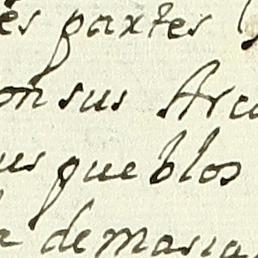 es partes
on sus Arc
us pueblos
demasia